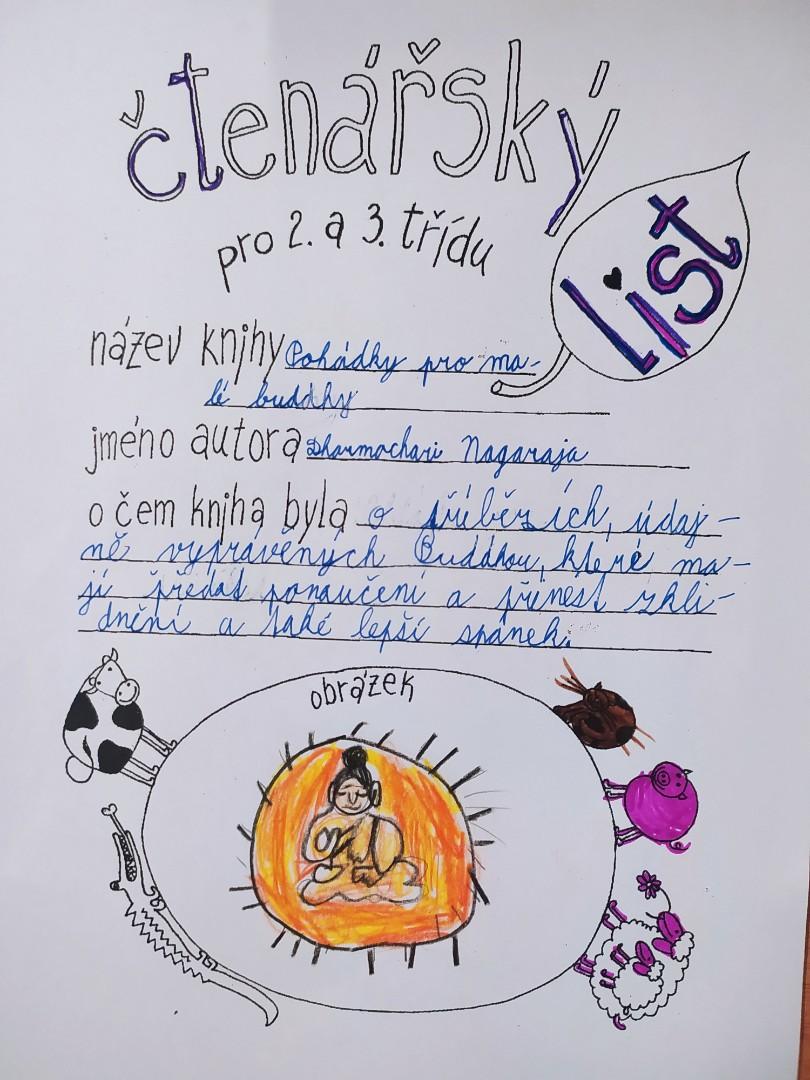 čtenářský
list
pro 2. a 3. třídu
název knihy Pohádky pro ma-
lé buddhy
jméno autora Dharmachari Nagaraja
o čem kniha byla o příbězích, údaj-
ně vyprávěných Buddhou, které ma-
jí předat ponaučení a přinést zkli-
dnění a také lepší spánek.
obrázek